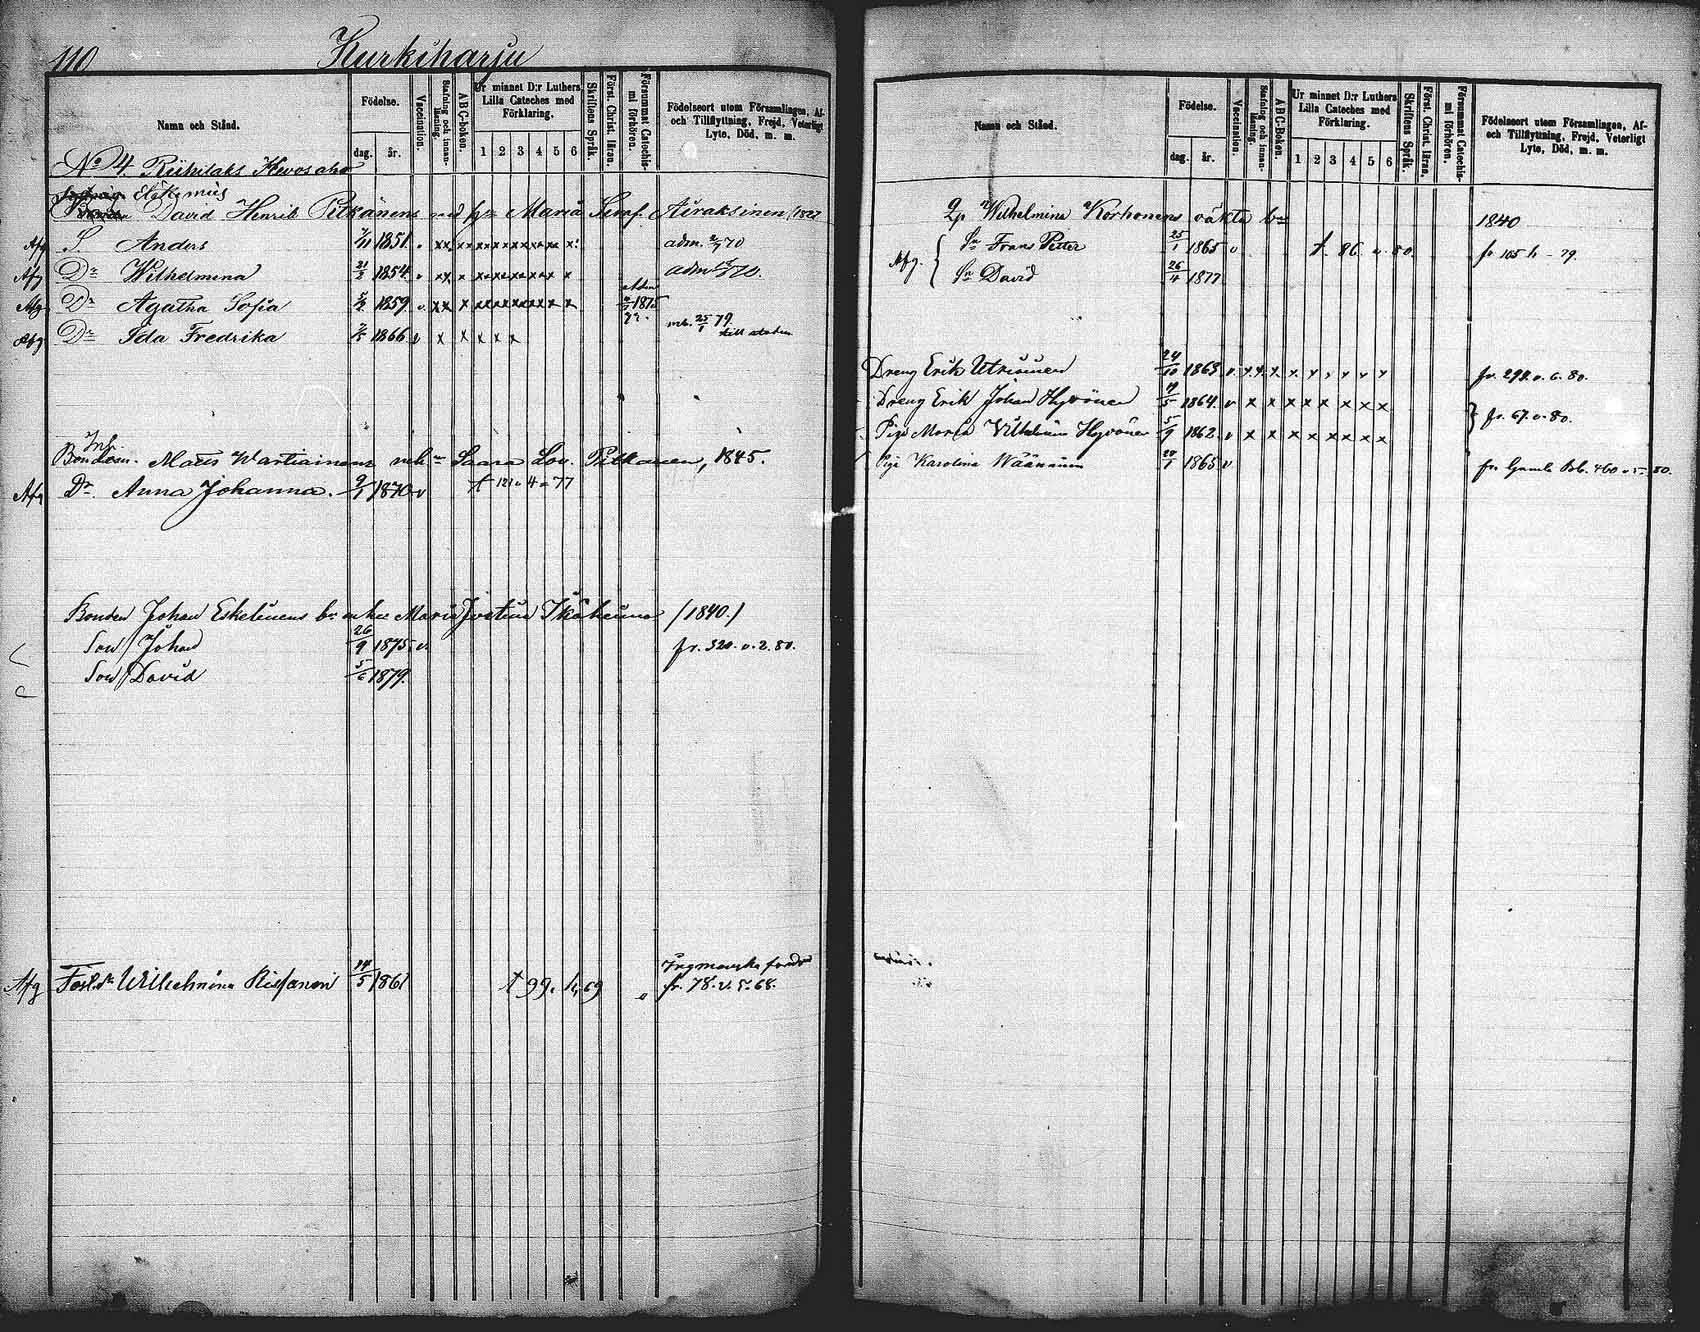 110 Kurkiharju
Namn och Stånd.
Födelse.
dag. år.
Vaccination.
Stafning och innan-läsning.
ABC-boken.
Ur minnet D:r Luthers Lilla Cateches med Förklaring.
1 2 3 4 5 6
Skriftens Språk.
Först. Christ. läran.
Försummat Catechis-mi förhören.
Födelseort utom Församlingen, Af- och Tillflyttning, Frejd, Veterligt Lyte, Död, m. m.
No 4. Riihilaks Hevosaho
David Henrik Pitkänens Maria Airaksinen 1827
Afg S. Anders 7/11 1851. v xx x xxxxxxx x adm. 70
Afg Dr Wilhelmina 21/2 1854. v xx x xxxxxxx x adm 70.
Afg Dr Agatha Sofia 1859 v. xx x xxxxxxx x 1875
Afg Dr Ida Fredrika 1866 v x x x x x mb. 25/1 79. till staden
Inh.
Bonden Mats Wartiainens Saara Lov. Pitkänen, 1845.
Afg Dr Anna Johanna. 9/1 1870 v t 121 v 4 = 77
Bonden Johan Eskelinens Maria Ikäheimo /1840./
Son Johan 26/9 1875. v. fr. 320. v. 2. 80.
Son David 5/6 1879.
Afg Wilhelmina Rissanen 14/5 1861 t 99. 69 fr. 78. v. 5. 68.
Namn och Stånd.
Födelse.
dag. år.
Vaccination.
Stafning och innan-läsning.
ABC-Boken.
Ur minnet D:r Luthers Lilla Cateches med Förklaring.
1 2 3 4 5 6
Skriftens Språk.
Först. Christ. läran.
Försummat Catechis-mi förhören.
Födelseort utom Församlingen, Af- och Tillflyttning, Frejd, Veterligt Lyte, Död, m. m.
Wilhelmina Korhonens oäkta 1840
Afg. { Sn Frans Petter 25/1 1865 v t. 86. v. 80. fr 105 h - 79.
Sn David 26/4 1877
Dreng Erik Utriainen 24/10 1863. v. x x. x x x x x x x fr. 298. v. 6. 80.
Dreng Erik Johan Hyvönen 19/5 1864. v x x x x x x x x } fr. 67. v. 80.
Piga Maria Vilhelmina Hyvönen 5/9 1862. v x x x x x x x x
Piga Karolina Väänänen 1865 v fr. Gamla Bob. 460 v. 5 - 80.